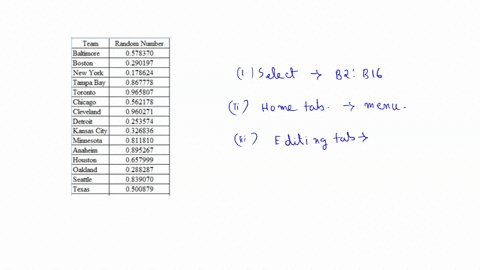 Team Random Number
Baltimore 0.578370
Boston 0.290197
New York 0.178624
Tampa Bay 0.867778
Toronto 0.965807
Chicago 0.562178
Cleveland 0.960271
Detroit 0.253574
Kansas City 0.326836
Minnesota 0.811810
Anaheim 0.895267
Houston 0.657999
Oakland 0.288287
Seattle 0.839070
Texas 0.500879
(i) Select → B2: B16
(ii) Home tab. → menu.
(iii) Editing tab →